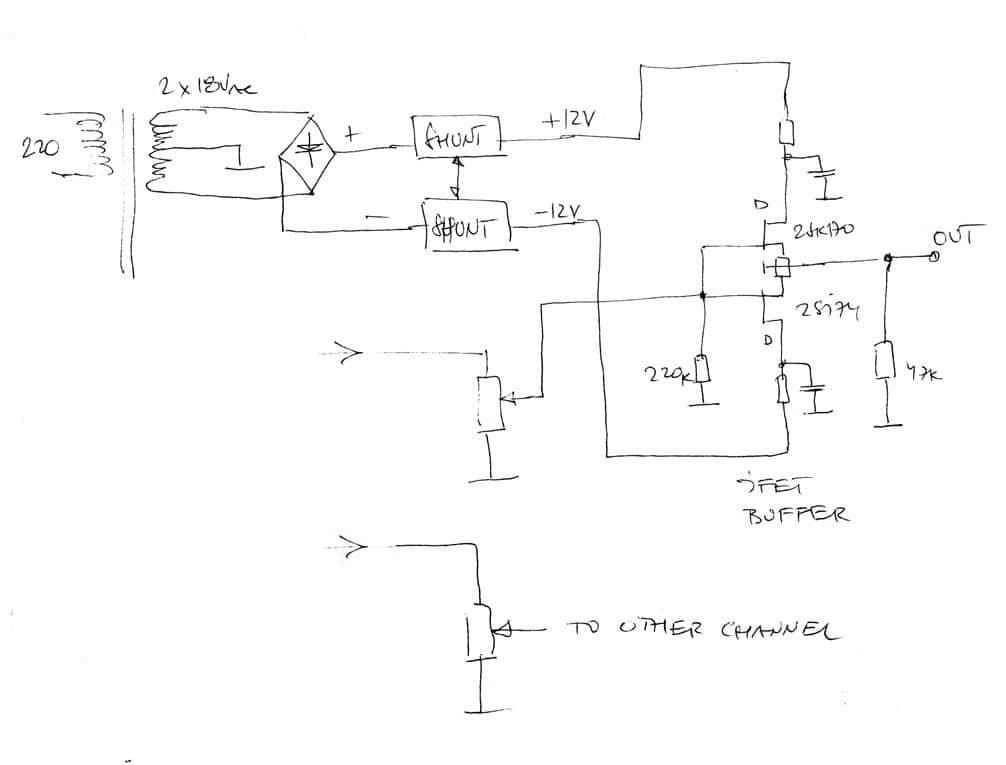 2 x 18Vac
220
+
SHUNT
+12V
-
SHUNT
-12V
D
2SK170
OUT
2SJ74
D
220K
47K
JFET
BUFFER
TO OTHER CHANNEL